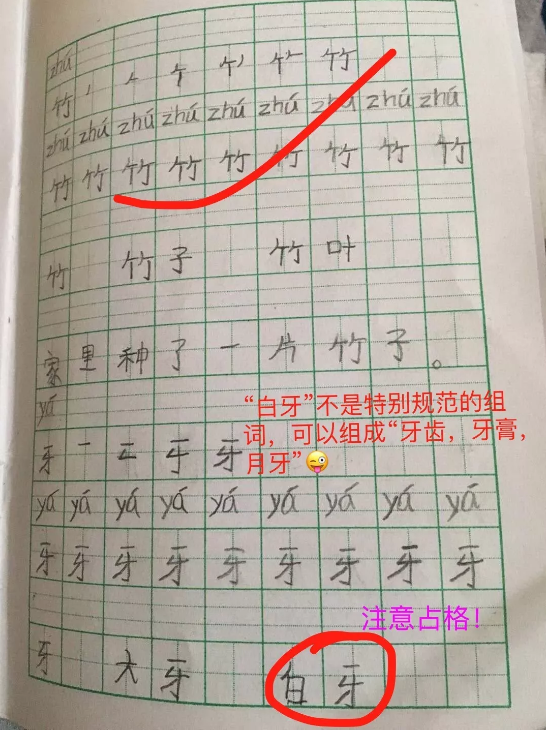 zhú
竹 丿 𠂉 ケ 竹 竹 竹
zhú zhú zhú zhú zhú zhú zhú zhú zhú
竹 竹 竹 竹 竹 竹 竹 竹 竹
竹 竹子 竹叶
家里种了一片竹子。
yá
牙 一 二 于 牙
“白牙”不是特别规范的组
词，可以组成“牙齿，牙膏，
月牙”😜
yá yá yá yá yá yá yá yá yá
牙 牙 牙 牙 牙 牙 牙 牙 牙
注意占格！
牙 大牙 白牙